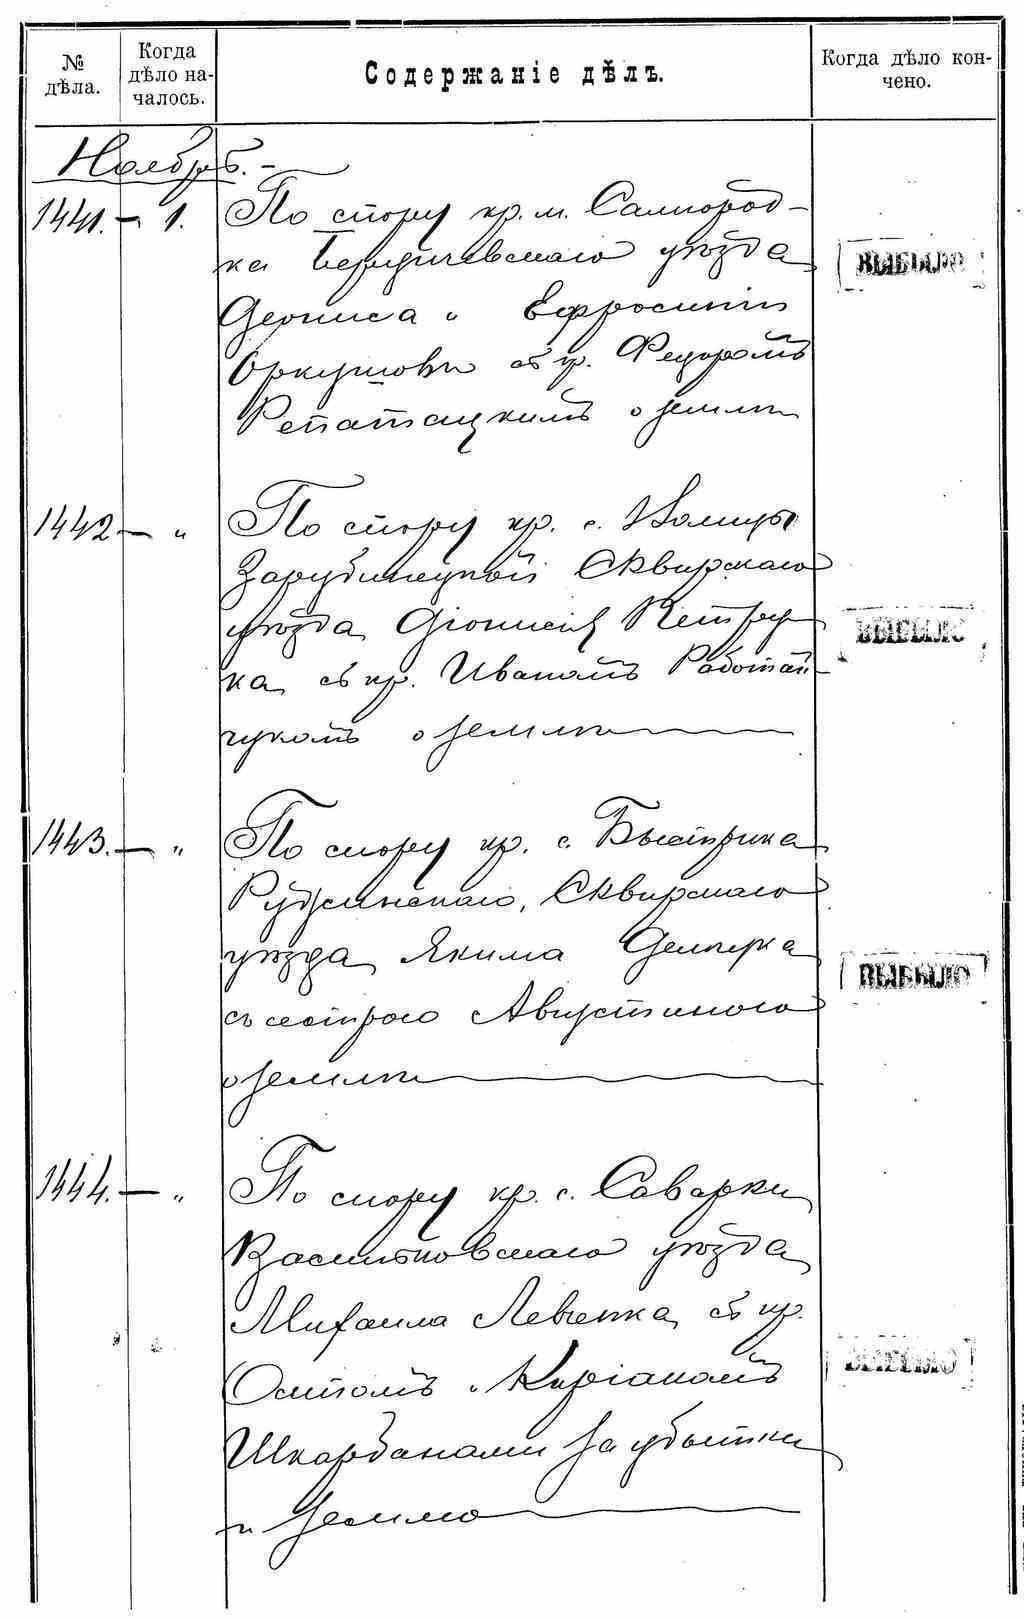 № дѣла.
Когда дѣло на-
чалось.
Содержаніе дѣлъ.
Когда дѣло кон-
чено.
Ноябрь.-
1441.- 1. По спору кр. м. Самгород-
ка Бердичевскаго уѣзда
Дениса и Ефросиніи
Оркушовы съ кр. Федоромъ
о землѣ
ВЫБЫЛО
1442 - " По спору кр. с.
Зарубинецкой Сквирскаго
уѣзда Діонисія Петру
ка съ кр. Иваномъ Работай-
чукомъ о землѣ
ВЫБЫЛО
1443.- " По спору кр. с. Быстрика
Ружинскаго, Сквирскаго
уѣзда Якима
съ сестрою Августиною
о землѣ
ВЫБЫЛО
1444.- " По спору кр. с. Саварки
Васильковскаго уѣзда
Михаила Левченка съ кр.
Осипомъ и Киріакомъ
Шкарбанами за убытки
и землю
ВЫБЫЛО